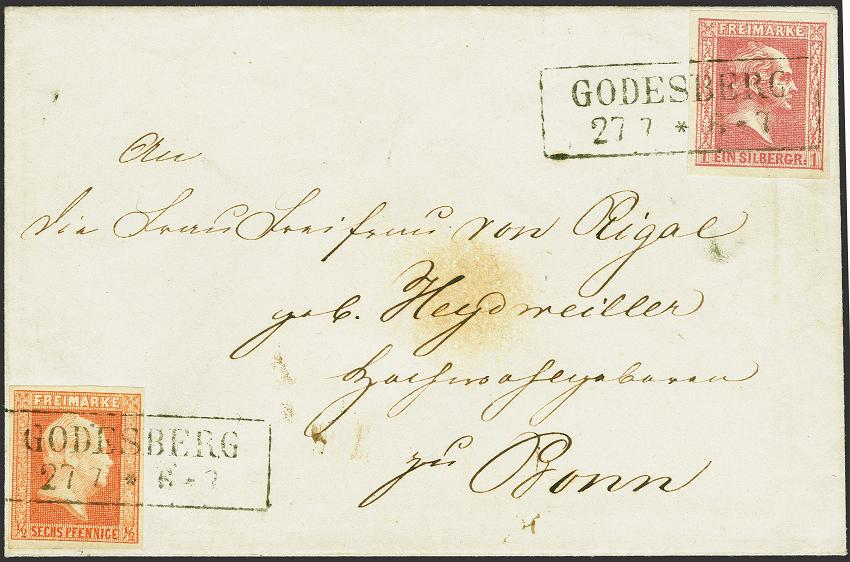 FREIMARKE
GODESBERG
27 7 * 6-7
1 EIN SILBERGR. 1
An
die Frau Freifrau von Rigal
geb. Heydweiller
Hochwohlgeboren
zu Bonn
FREIMARKE
GODESBERG
27 7 * 6-7
1/2 SECHS PFENNIGE 1/2